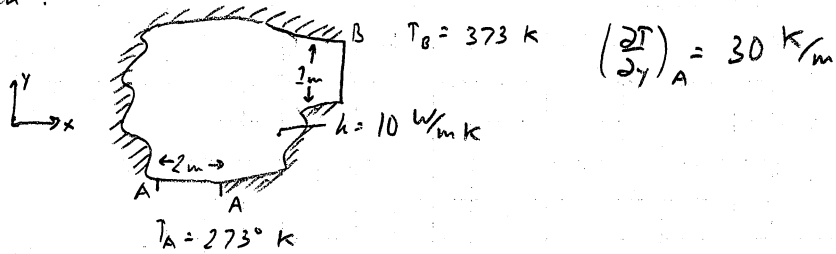 B T_B = 373 K (∂T/∂y)_A = 30 K/m
Y
x
1m
k = 10 W/m K
2m
A A
T_A = 273° K